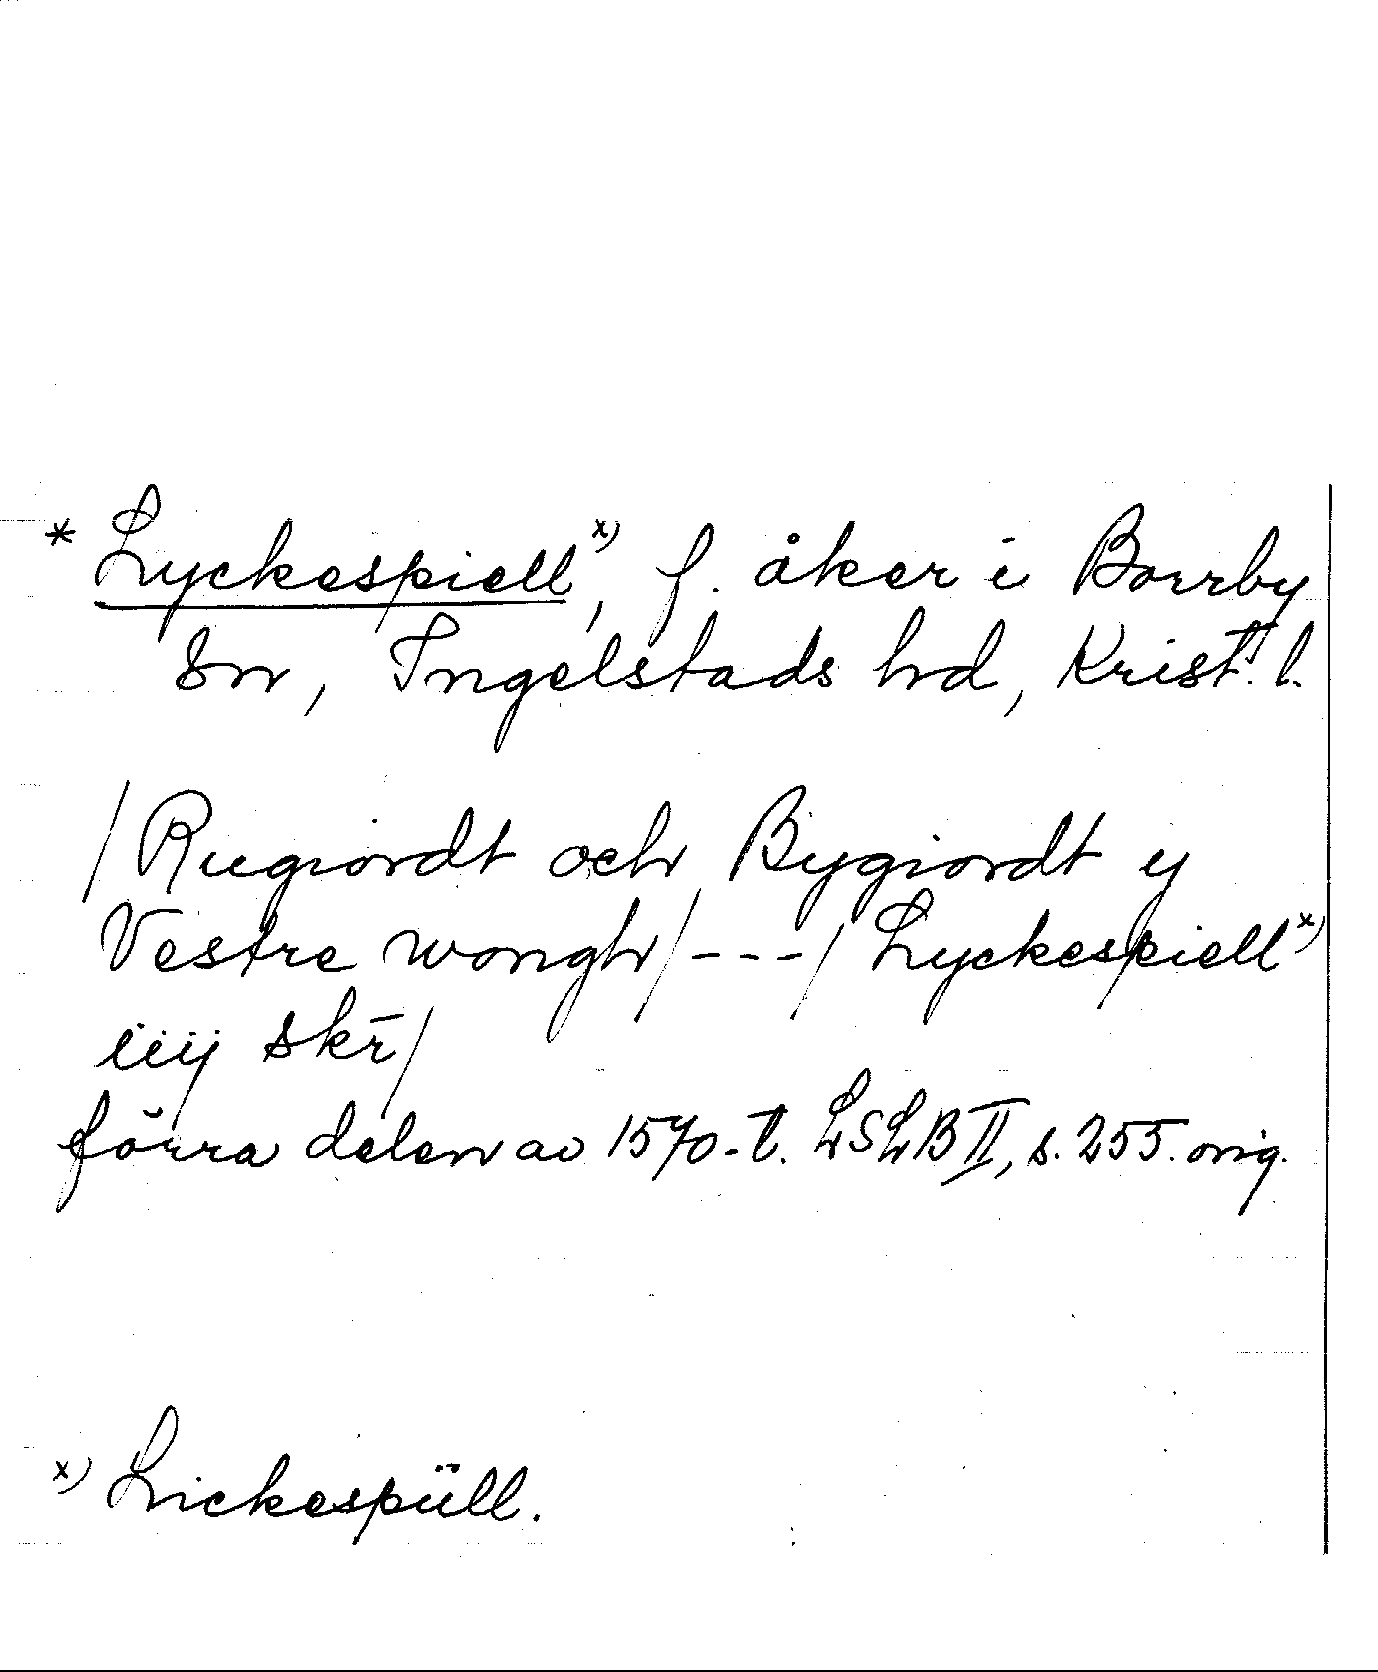 * Lyckespiell x), f. åker i Borrby
sn, Ingelstads hd, Krist:s l.
/Rugiordt och Bygiordt y
Vestre wongh/---/Lyckespiell x)
iiij skr̄/
förra delen av 1570-t. LSLB II, s. 255. orig.
x) Lickespüll.